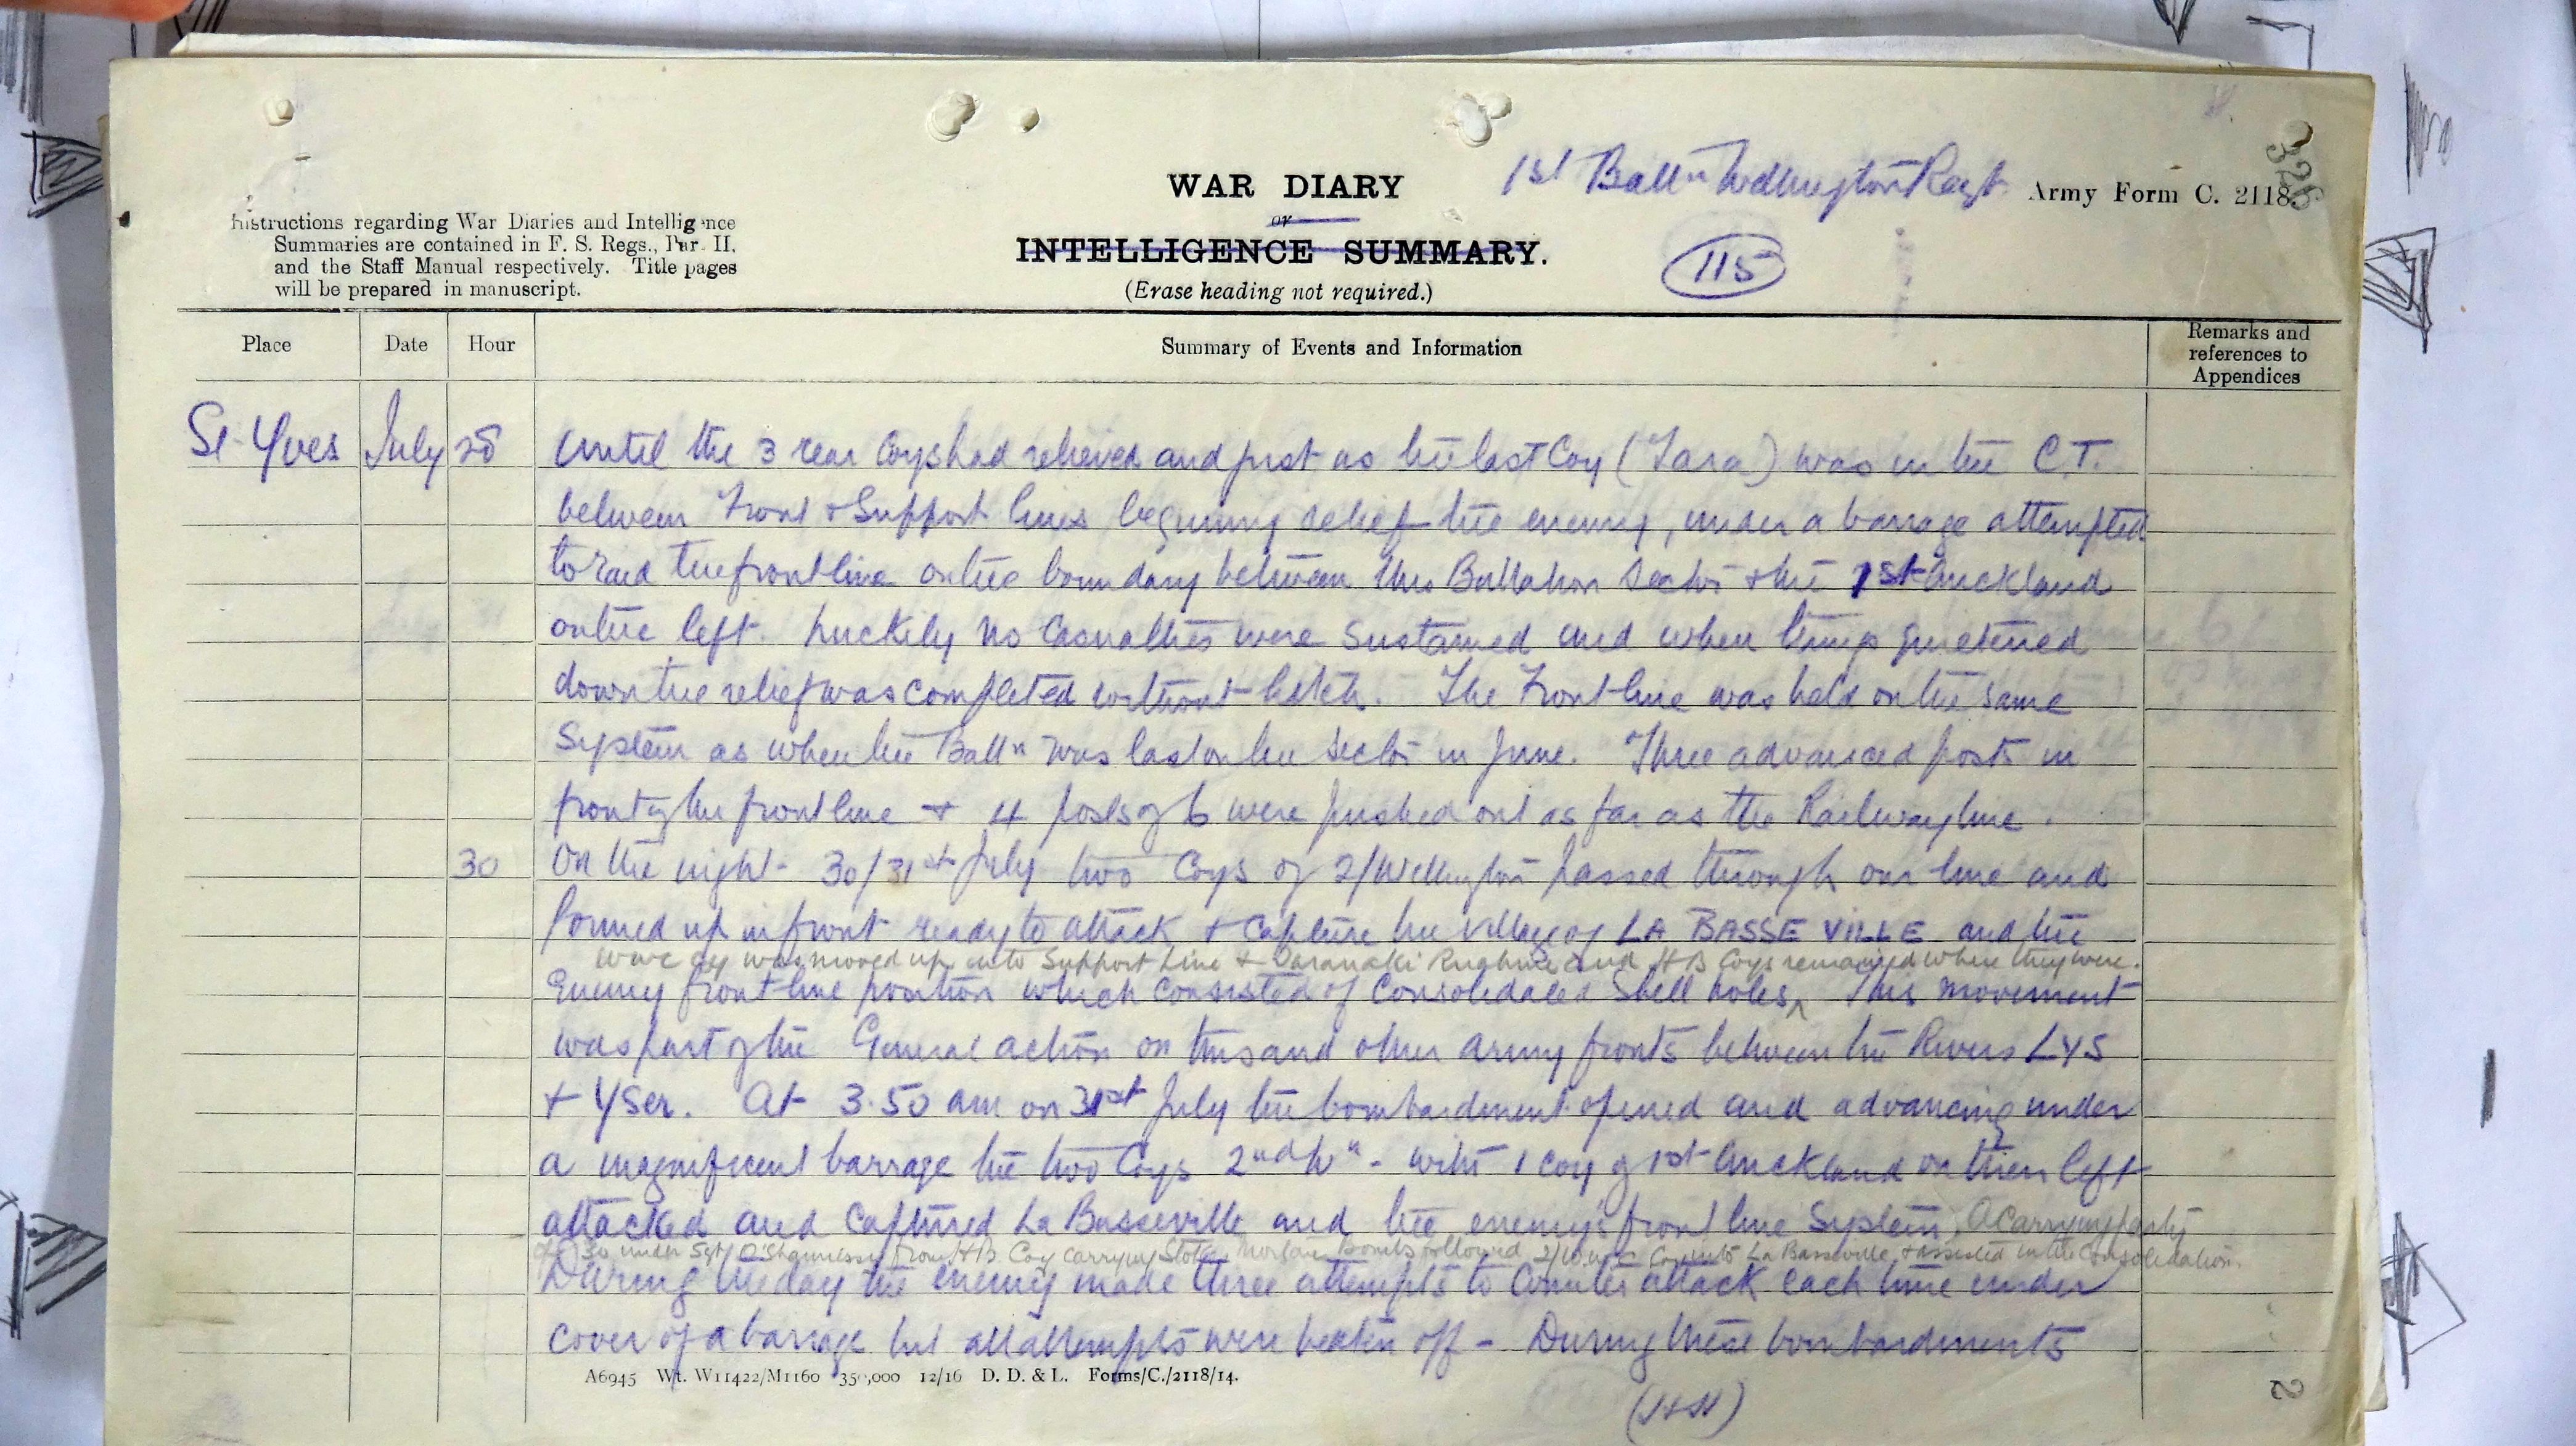 WAR DIARY
or
INTELLIGENCE SUMMARY.
(Erase heading not required.)
1st Battn Wellington Regt
Army Form C. 2118.
326
115
Instructions regarding War Diaries and Intelligence
Summaries are contained in F. S. Regs., Part II.
and the Staff Manual respectively. Title pages
will be prepared in manuscript.
Place Date Hour Summary of Events and Information Remarks and references to Appendices
St Yves July 28 until the 3 rear Coys had relieved and just as the last Coy (Tara) was in the C.T.
between Front & Support lines beginning relief the enemy, under a barrage attempted
to raid the front line on the boundary between this Battalion Sector & the 1st Auckland
on the left. Luckily no casualties were sustained and when things quietened
down the relief was completed without hitch. The Front line was held on the same
System as when the Battn was last on the sector in June. Three advanced posts in
front of the front line & 4 posts of 6 were pushed out as far as the Railway line.
30 On the night 30/31st July two Coys of 2/Wellington passed through our line and
formed up in front ready to attack & capture the village of LA BASSE VILLE and the
WWC Coy was moved up into Support Line & Taranaki Ruahine and HB Coys remained where they were.
Enemy front line position which consisted of Consolidated Shell holes. This movement
was part of the General action on this and other army fronts between the Rivers LYS
& YSer. At 3.50 am on 31st July the bombardment opened and advancing under
a magnificent barrage the two Coys 2nd Wn - with 1 coy of 1st Auckland on their left
attacked and captured La Basseville and the enemy's front line System. A carrying party
of 30 under Sgt O'Shannessy from HB Coy carrying Stokes Mortar Bombs followed 2/ Coy into La Basseville & assisted in the Consolidation.
During the day the enemy made three attempts to Counter attack each time under
cover of a barrage but all attempts were beaten off - During these bombardments
A6945 Wt. W11422/M1160 350,000 12/16 D. D. & L. Forms/C./2118/14.
2